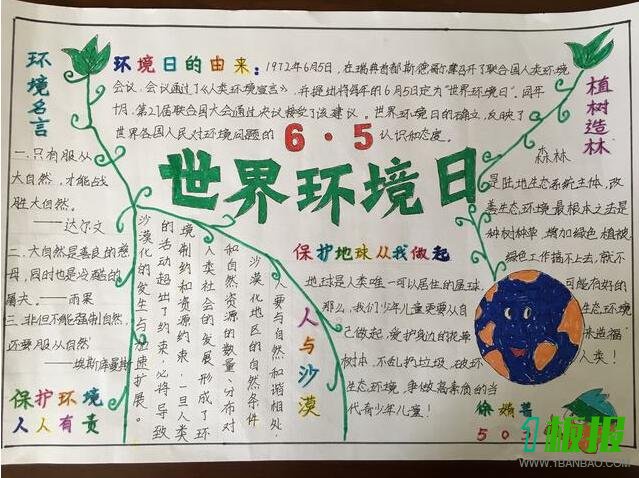 环境日的由来：1972年6月5日，在瑞典首都斯德哥摩召开了联合国人类环境
会议，会议通过了《人类环境宣言》，并提出将每年的6月5日定为"世界环境日"。同年
十月，第27届联合国大会通过决议接受了该建议。世界环境日的确立，反映了
世界各国人民对环境问题的
认识和态度。
6·5
世界环境日
环境名言
一.只有服从
大自然，才能战
胜大自然。
——达尔文
二、大自然是善良的慈
母，同时也是冷酷的
屠夫。——雨果
三.非但不能强制自然，
还要服从自然
——埃斯库曼斯
保护环境
人人有责
人与沙漠
人要与自然和谐相处，
沙漠化地区的自然条件
和自然资源的数量、分布对
人类社会的发展形成了环
境制约和资源约束，一旦人类
的活动超出了约束，必将导致
沙漠化的发生与加速扩展。
保护地球从我做起
地球是人类唯一可以居住的星球，
那么，我们少年儿童更要从自
己做起，爱护身边的花草
树木，不乱扔垃圾，破坏
生态环境，争做高素质的当
代青少年儿童！
植树造林
森林
是陆地生态系统主体，改
善生态环境最根本之法是
种树种草，增加绿色植被，
绿色工作搞不上去，就不
可能有好的
生态环境
来造福
人类！
徐
505
1板报
WWW.1BANBAO.COM